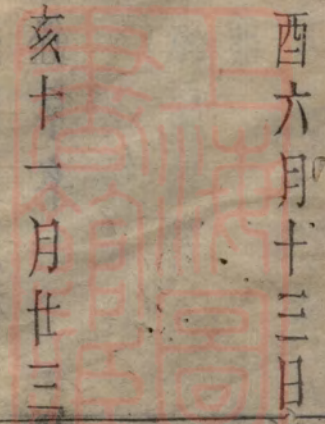 酉六月十三日
亥十一月廿三